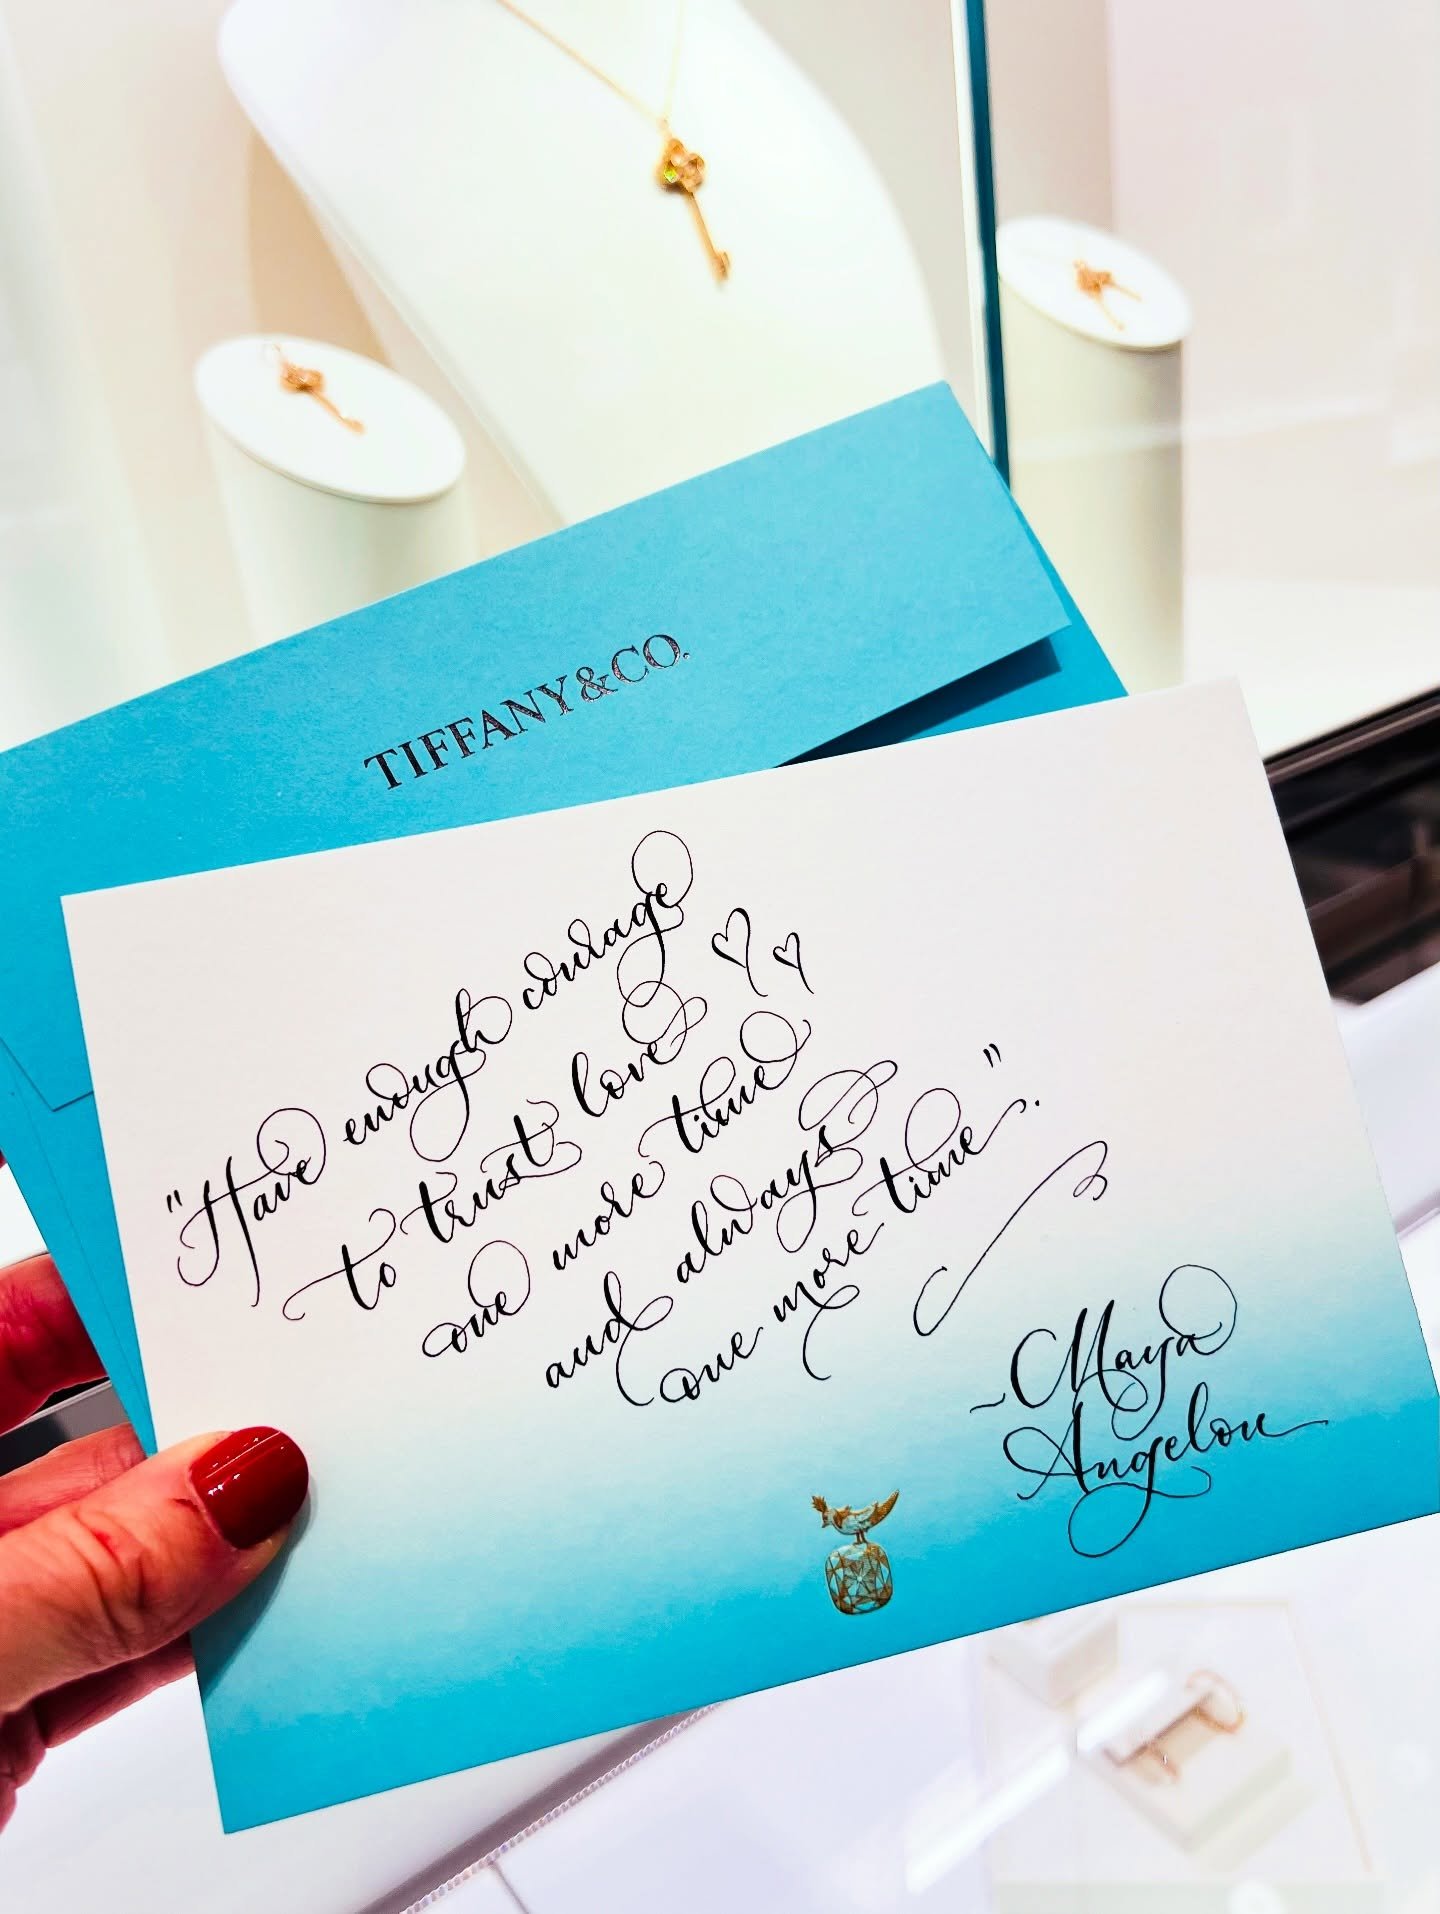 TIFFANY & CO.
"Have enough courage
to trust love
one more time
and always
one more time".
~Maya
Angelou